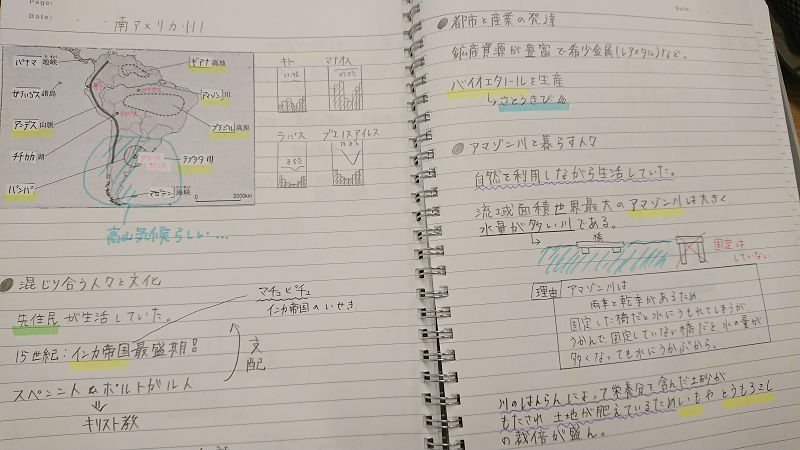 Page:
Date:
南アメリカ州
パナマ 地峡
ギアナ 高地
アマゾン 川
アンデス 山脈
ブラジル 高原
チチカカ 湖
ラプラタ 川
パンパ
マゼラン 海峡
2000km
キト
マナオス
ラパス
ブエノスアイレス
高山気候らしい…
混じり合う人々と文化
マチュピチュ
インカ帝国のいせき
先住民が生活していた。
15世紀:インカ帝国最盛期!!
支配
スペイン人&ポルトガル人
キリスト教
Date:
都市と産業の発達
鉱産資源が豊富で希少金属(レアメタル)など。
バイオエタノールを生産
さとうきび
アマゾン川と暮らす人々
自然を利用しながら生活していた。
流域面積世界最大のアマゾン川は大きく、
水量が多い川である。
橋
固定は
していない
理由
アマゾン川は
雨季と乾季があるため、
固定した橋だと水にうもれてしまうが
うかんで固定していない橋だと、水の量が
多くなっても水にうかぶから。
川のはんらんによって栄養分を含んだ土砂が
もたされ 土地が肥えているためいもや とうもろこし
の栽培が盛ん。